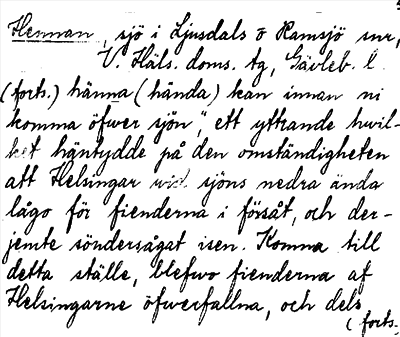 Hennan, sjö i Ljusdals o Ramsjö snr,
V. Häls. doms. tg, Gävleb. l.
(forts.) hänna (hända) kan innan ni
komma öfwer sjön", ett yttrande hwil-
ket häntydde på den omständigheten
att Helsingar wid sjöns nedra ända
lågo för fienderna i försåt, och der-
jemte söndersågat isen. Komma till
detta ställe, blefwo fienderna af
Helsingarne öfwerfallna, och dels
(forts.